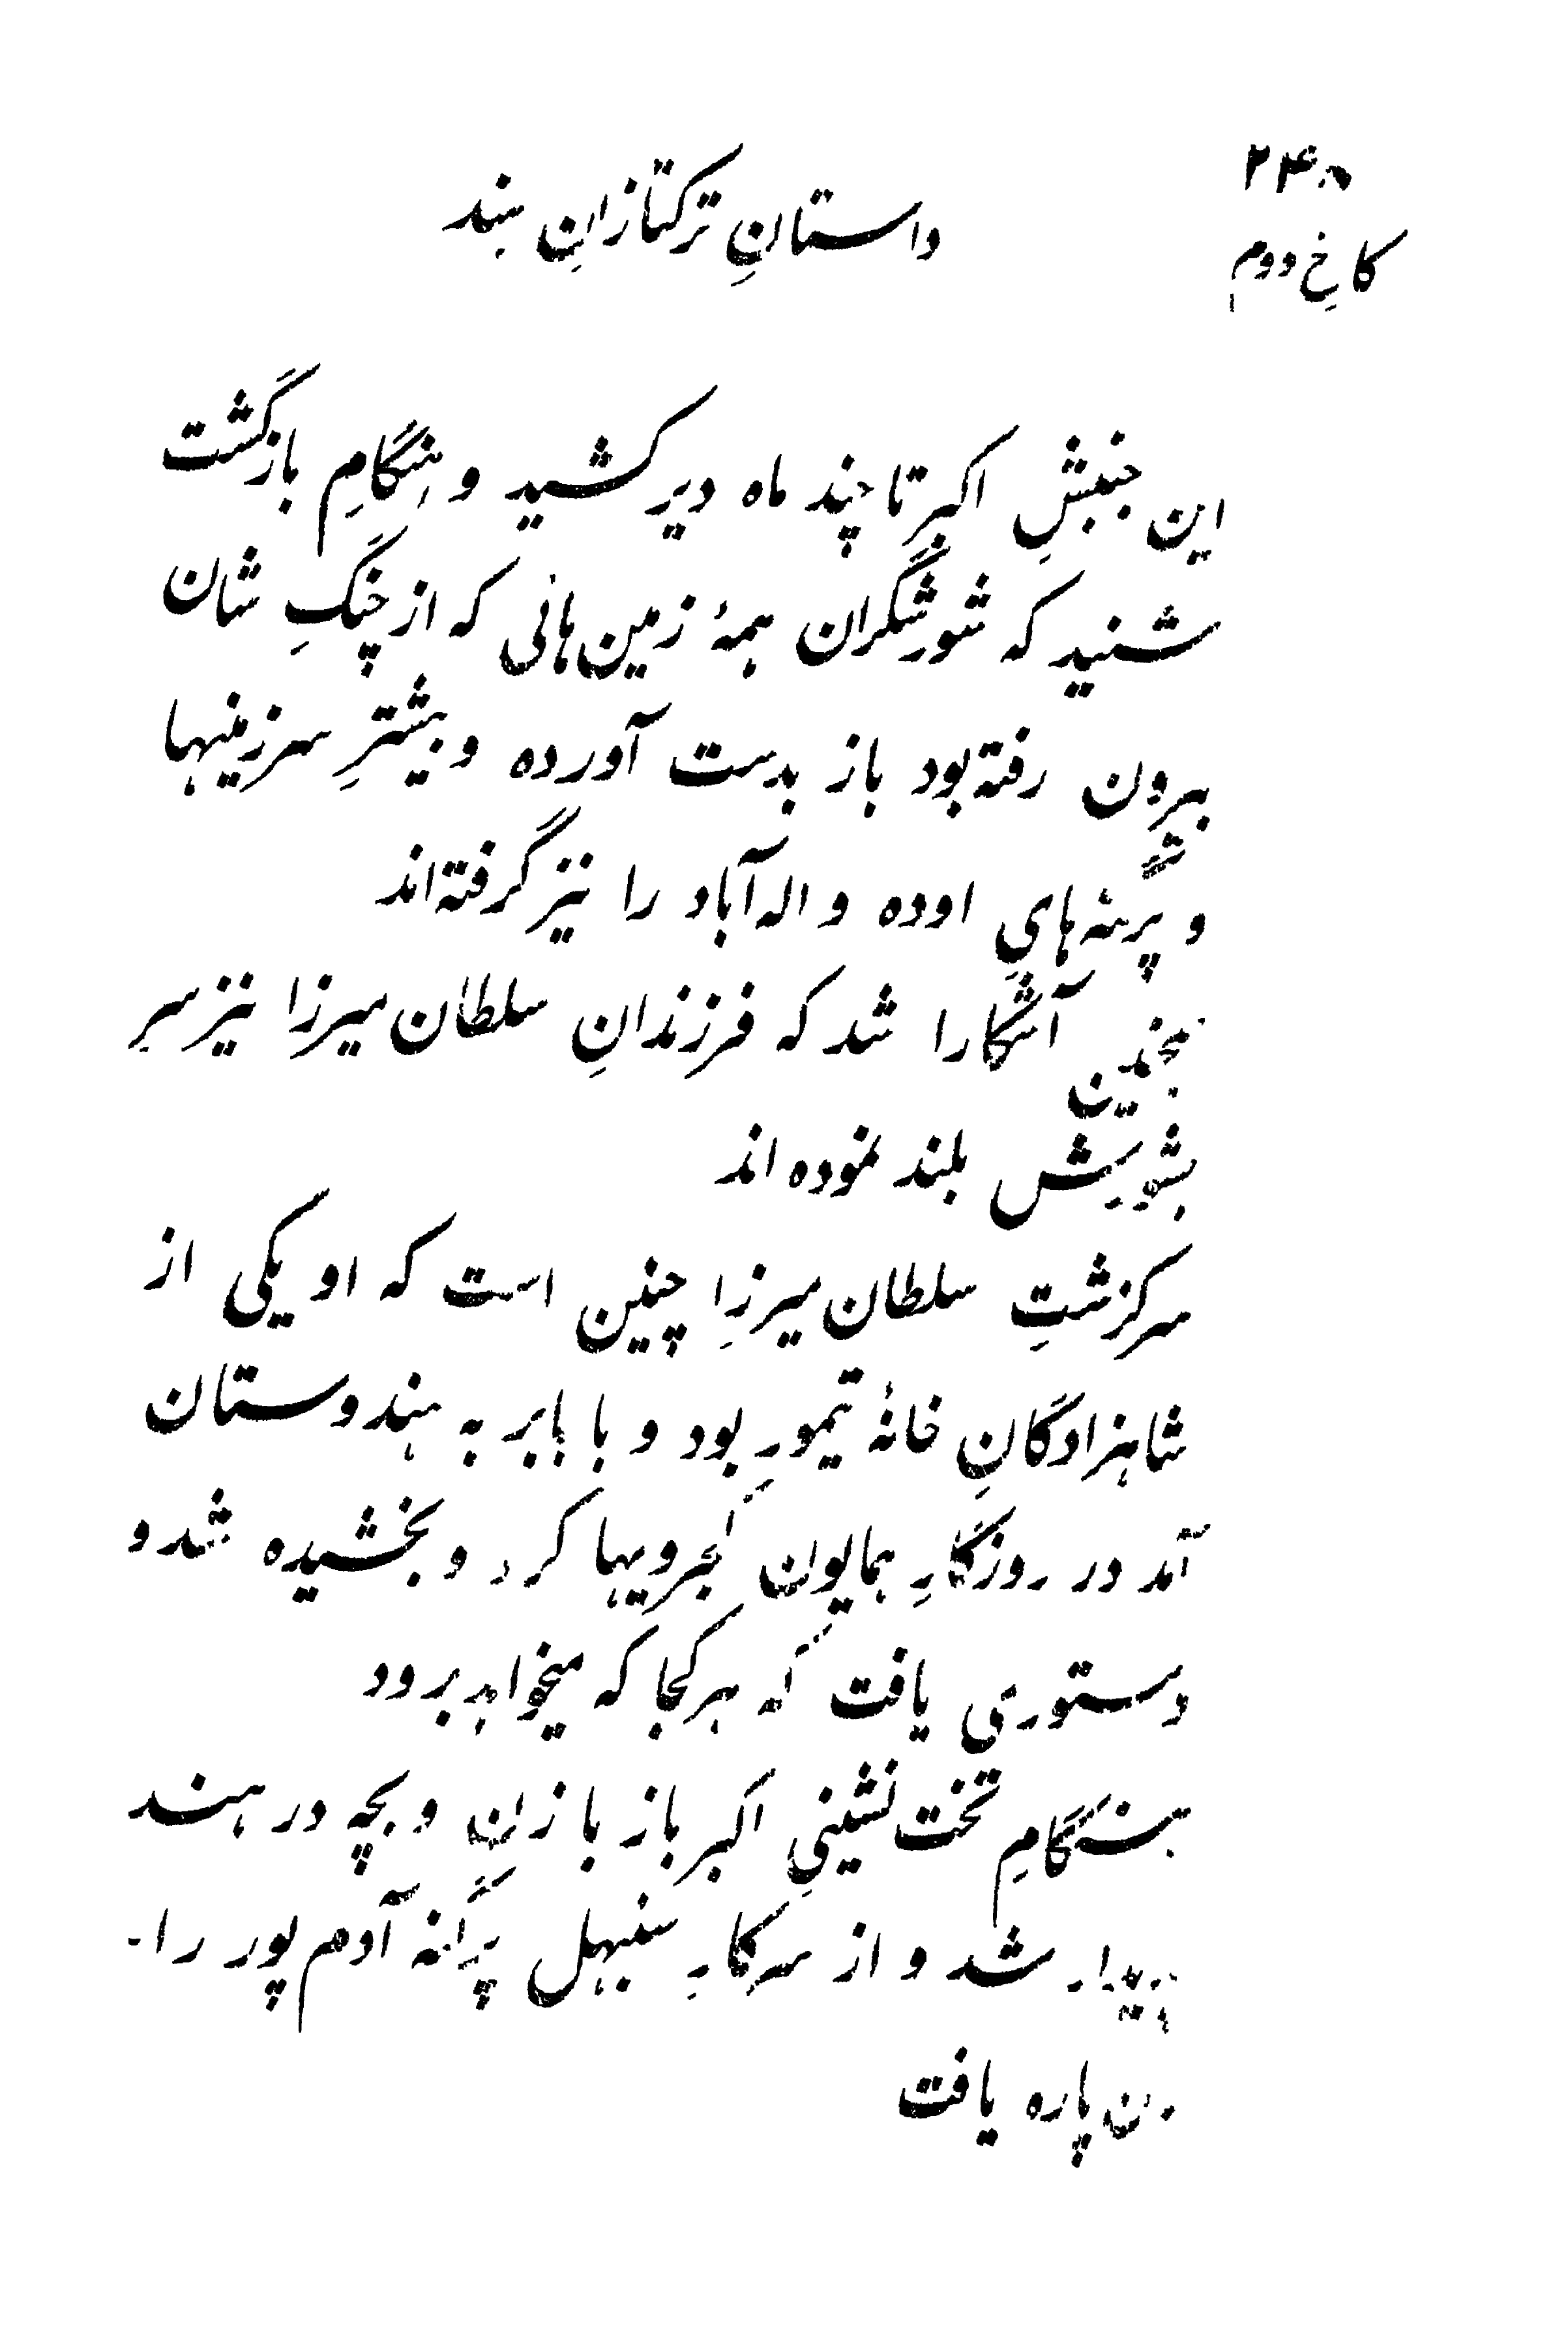 داستانِ ترکتازانِ هند
کاخِ دوم
این جنبشِ اکبر تا چند ماه دیر کشید و هنگامِ بازگشت
شنید که شورشگران همهٔ زمین هائی که از چنگِ شان
بیرون رفته بود باز بدست آورده و بیشترِ سرزمینها
و پرگنه هایِ اوده و اله آباد را نیز گرفته اند
همچنین آشکارا شد که فرزندانِ سلطان میرزا نیز سر
بشورش بلند نموده اند
سرگزشتِ سلطان میرزا چنین است که او یکی از
شاهزادگانِ خانهٔ تیمور بود و با بابر به هندوستان
آمد در روزگارِ همایون کجرویها کرد و بخشیده شد و
دستوری یافت که هر کجا که میخواهد برود
هنگامِ تخت نشینیِ اکبر باز با زن و بچه در هند
پدیدار شد و از سرکارِ سنبهل پرگنه آدم پور را
پاره یافت